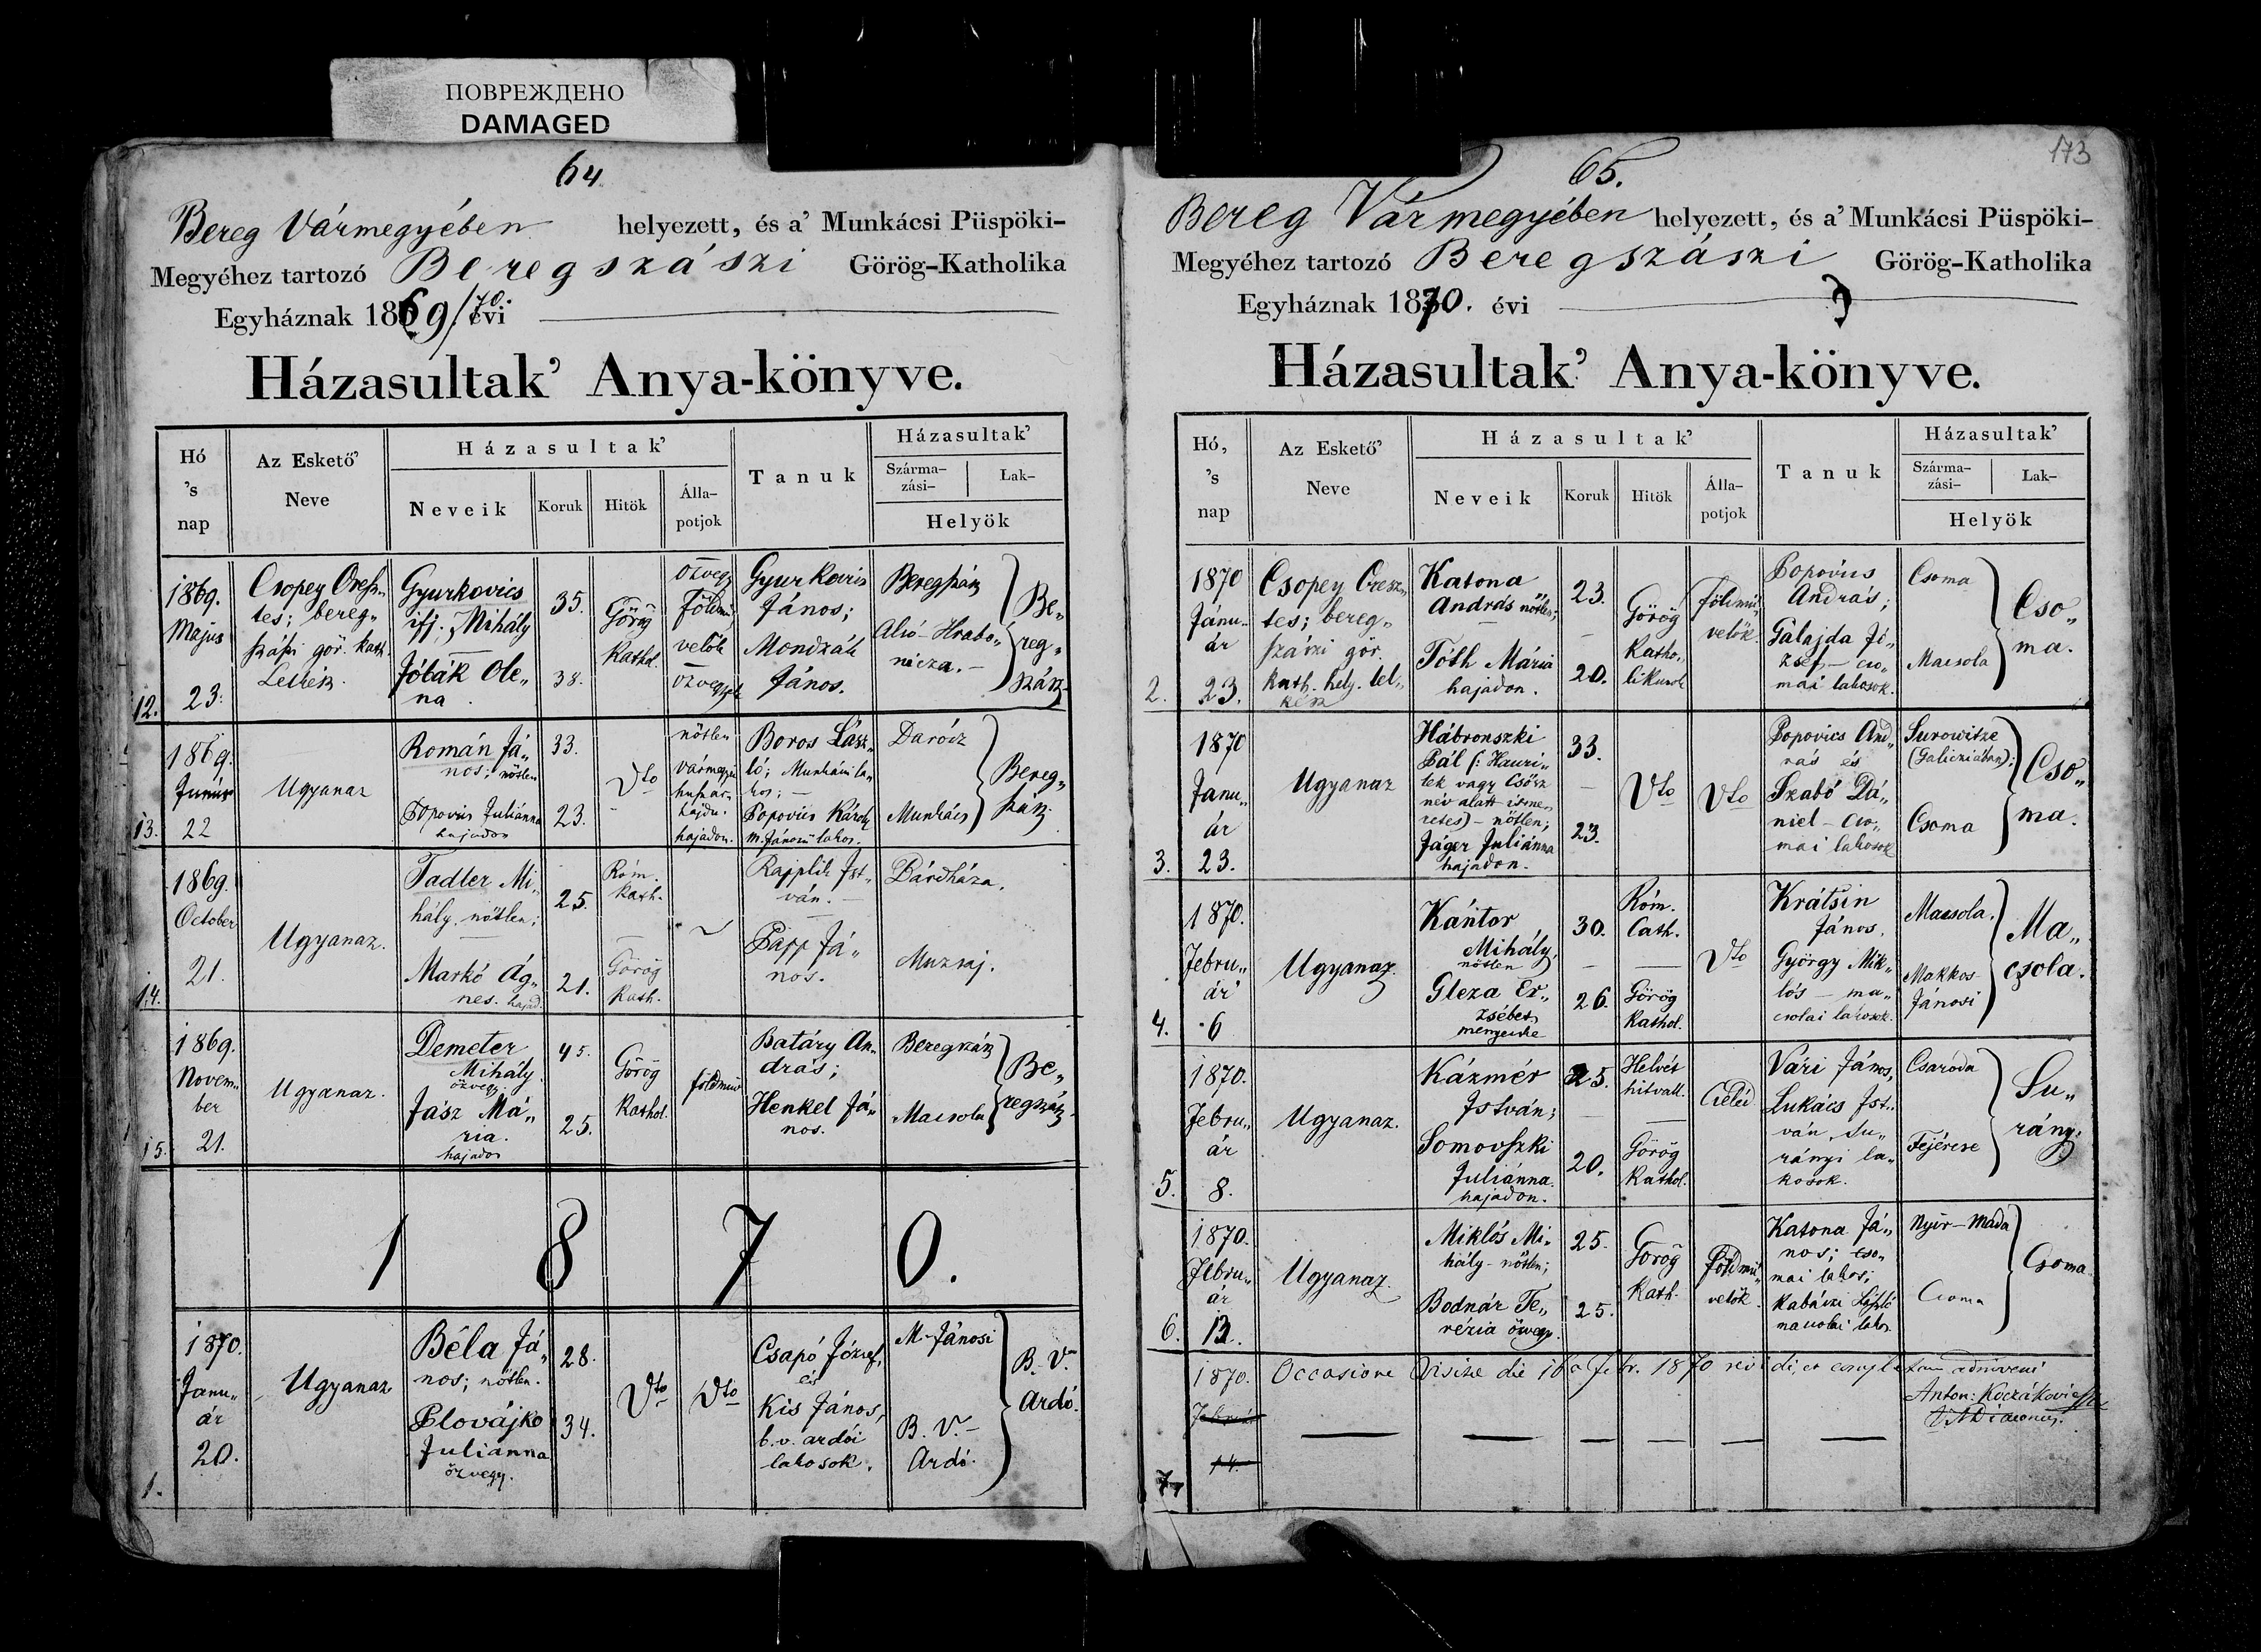 ПОВРЕЖДЕНО
DAMAGED
64
Bereg Vármegyében helyezett, és a' Munkácsi Püspöki-
Megyéhez tartozó Beregszászi Görög-Katholika
Egyháznak 1869/70. évi
Házasultak' Anya-könyve.
Hó 's nap
Az Eskető' Neve
Házasultak'
Neveik
Koruk
Hitök
Álla-potjok
Tanuk
Házasultak'
Szárma-zási-
Lak-
Helyök
12.
1869.
Május
23.
Csopey Oresz„
tes; bereg„
szászi gör. kath.
Lelkész.
Gyurkovics
ifj. Mihály
Jóták Ole„
na.
35.
38.
Görög
Kathol.
özvegy
földmű
velők
Gyurkovics
János;
Mondzák
János.
Beregszász
Alsó-Hrabó„
nicza.—
Be„
reg„
szász
13.
1869.
Junius
22
Ugyanaz
Román Já„
nos; nőtlen
Popovics Juliánna
hajadon
33.
23.
Dto
nőtlen
vármegyei
huszár„
hajdu.
hajadon.
Boros Lász„
ló; Munkácsi la„
kos; —
Popovics Károly
M. Jánosii lakos.
Darócz
Munkács
Bereg„
szász
14.
1869.
October
21.
Ugyanaz.
Tadler Mi„
hály. nőtlen;
Markó Ág„
nes. hajad
25.
21.
Róm.
kath.
Görög
Kath.
Rapplik Ist„
ván.—
Papp Já„
nos.
Dárdháza.
Muzsaj.
15.
1869.
Novem„
ber
21.
Ugyanaz.
Demeter
Mihály.
özvegy.
Jász Má„
ria.
hajadon
45.
25.
Görög
Kathol.
földműv
Batáry An„
drás;
Henkel Já„
nos.
Beregszász
Macsola
Be„
regszász.
1870.
1.
1870.
Janu„
ár
20.
Ugyanaz
Béla Já„
nos; nőtlen.
Plovájko
Julianna
özvegy.
28.
34.
Dto
Dto
Csapó József,
és
Kis János,
b.v. ardói
lakosok.
M-Jánosi
B. V.—
Ardó.
B. V.
Ardó.
173
65.
Bereg Vármegyében helyezett, és a' Munkácsi Püspöki-
Megyéhez tartozó Beregszászi Görög-Katholika
Egyháznak 1870. évi
Házasultak' Anya-könyve.
Hó, 's nap
Az Eskető' Neve
Házasultak'
Neveik
Koruk
Hitök
Álla-potjok
Tanuk
Házasultak'
Szárma-zási-
Lak-
Helyök
2.
1870
Jánu„
ár
23.
Csopey Oresz„
tes; bereg„
szászi gör.
kath. hely. lel„
kész
Katona
András nőtlen;
Tóth Mária
hajadon.
23.
20.
Görög
Katho„
likusok
földmű„
velők.
Popovics
András;
Galajda Jó„
zsef — cso„
mai lakosok.
Csoma
Macsola
Cso„
ma.
3.
1870
Janu„
ár
23.
Ugyanaz
Hábronszki
Pál (: Hauri„
lek vagy Csősz
név alatt isme„
retes) — nőtlen;
Jáger Juliánna
hajadon.
33.
23.
Dto
Dto
Popovics And„
rás és
Szabó Dá„
niel — cso„
mai lakosok
Surowitze
(Galicziában);
Csoma
Cso„
ma.
4.
1870.
Febru„
ár
6
Ugyanaz.
Kántor
Mihály,
nőtlen
Gleza Er„
zsébet,
menyecske
30.
26.
Róm.
Cath.
Görög
Kathol.
Dto
Krátsin
János.
György Mik„
lós — ma„
csolai lakosok.
Macsola.
Makkos
Jánosi
Ma„
csola.
5.
1870.
Febru„
ár
8.
Ugyanaz.
Kázmér
István;
Somovszki
Juliánna.
hajadon.
25.
20.
Helvét
hitvall.
Görög
Kathol.
Cseléd
Vári János,
Lukács Ist„
ván, Su„
rányi la„
kosok.
Csaroda
Fejércse
Su„
rány.
6.
1870.
Febru„
ár
13.
Ugyanaz.
Miklós Mi„
hály — nőtlen;
Bodnár Te„
rézia özvegy.
25.
25.
Görög
Kath.
Földmű„
velők.
Katona Já„
nos; cso„
mai lakos;
Kabáczi László
macsolai lakos.
Nyír-Mada
Csoma
Csoma
7.
1870.
Február
14.
Occasione Visitae die 16a Febr. 1870 revidi, et completam adinveni